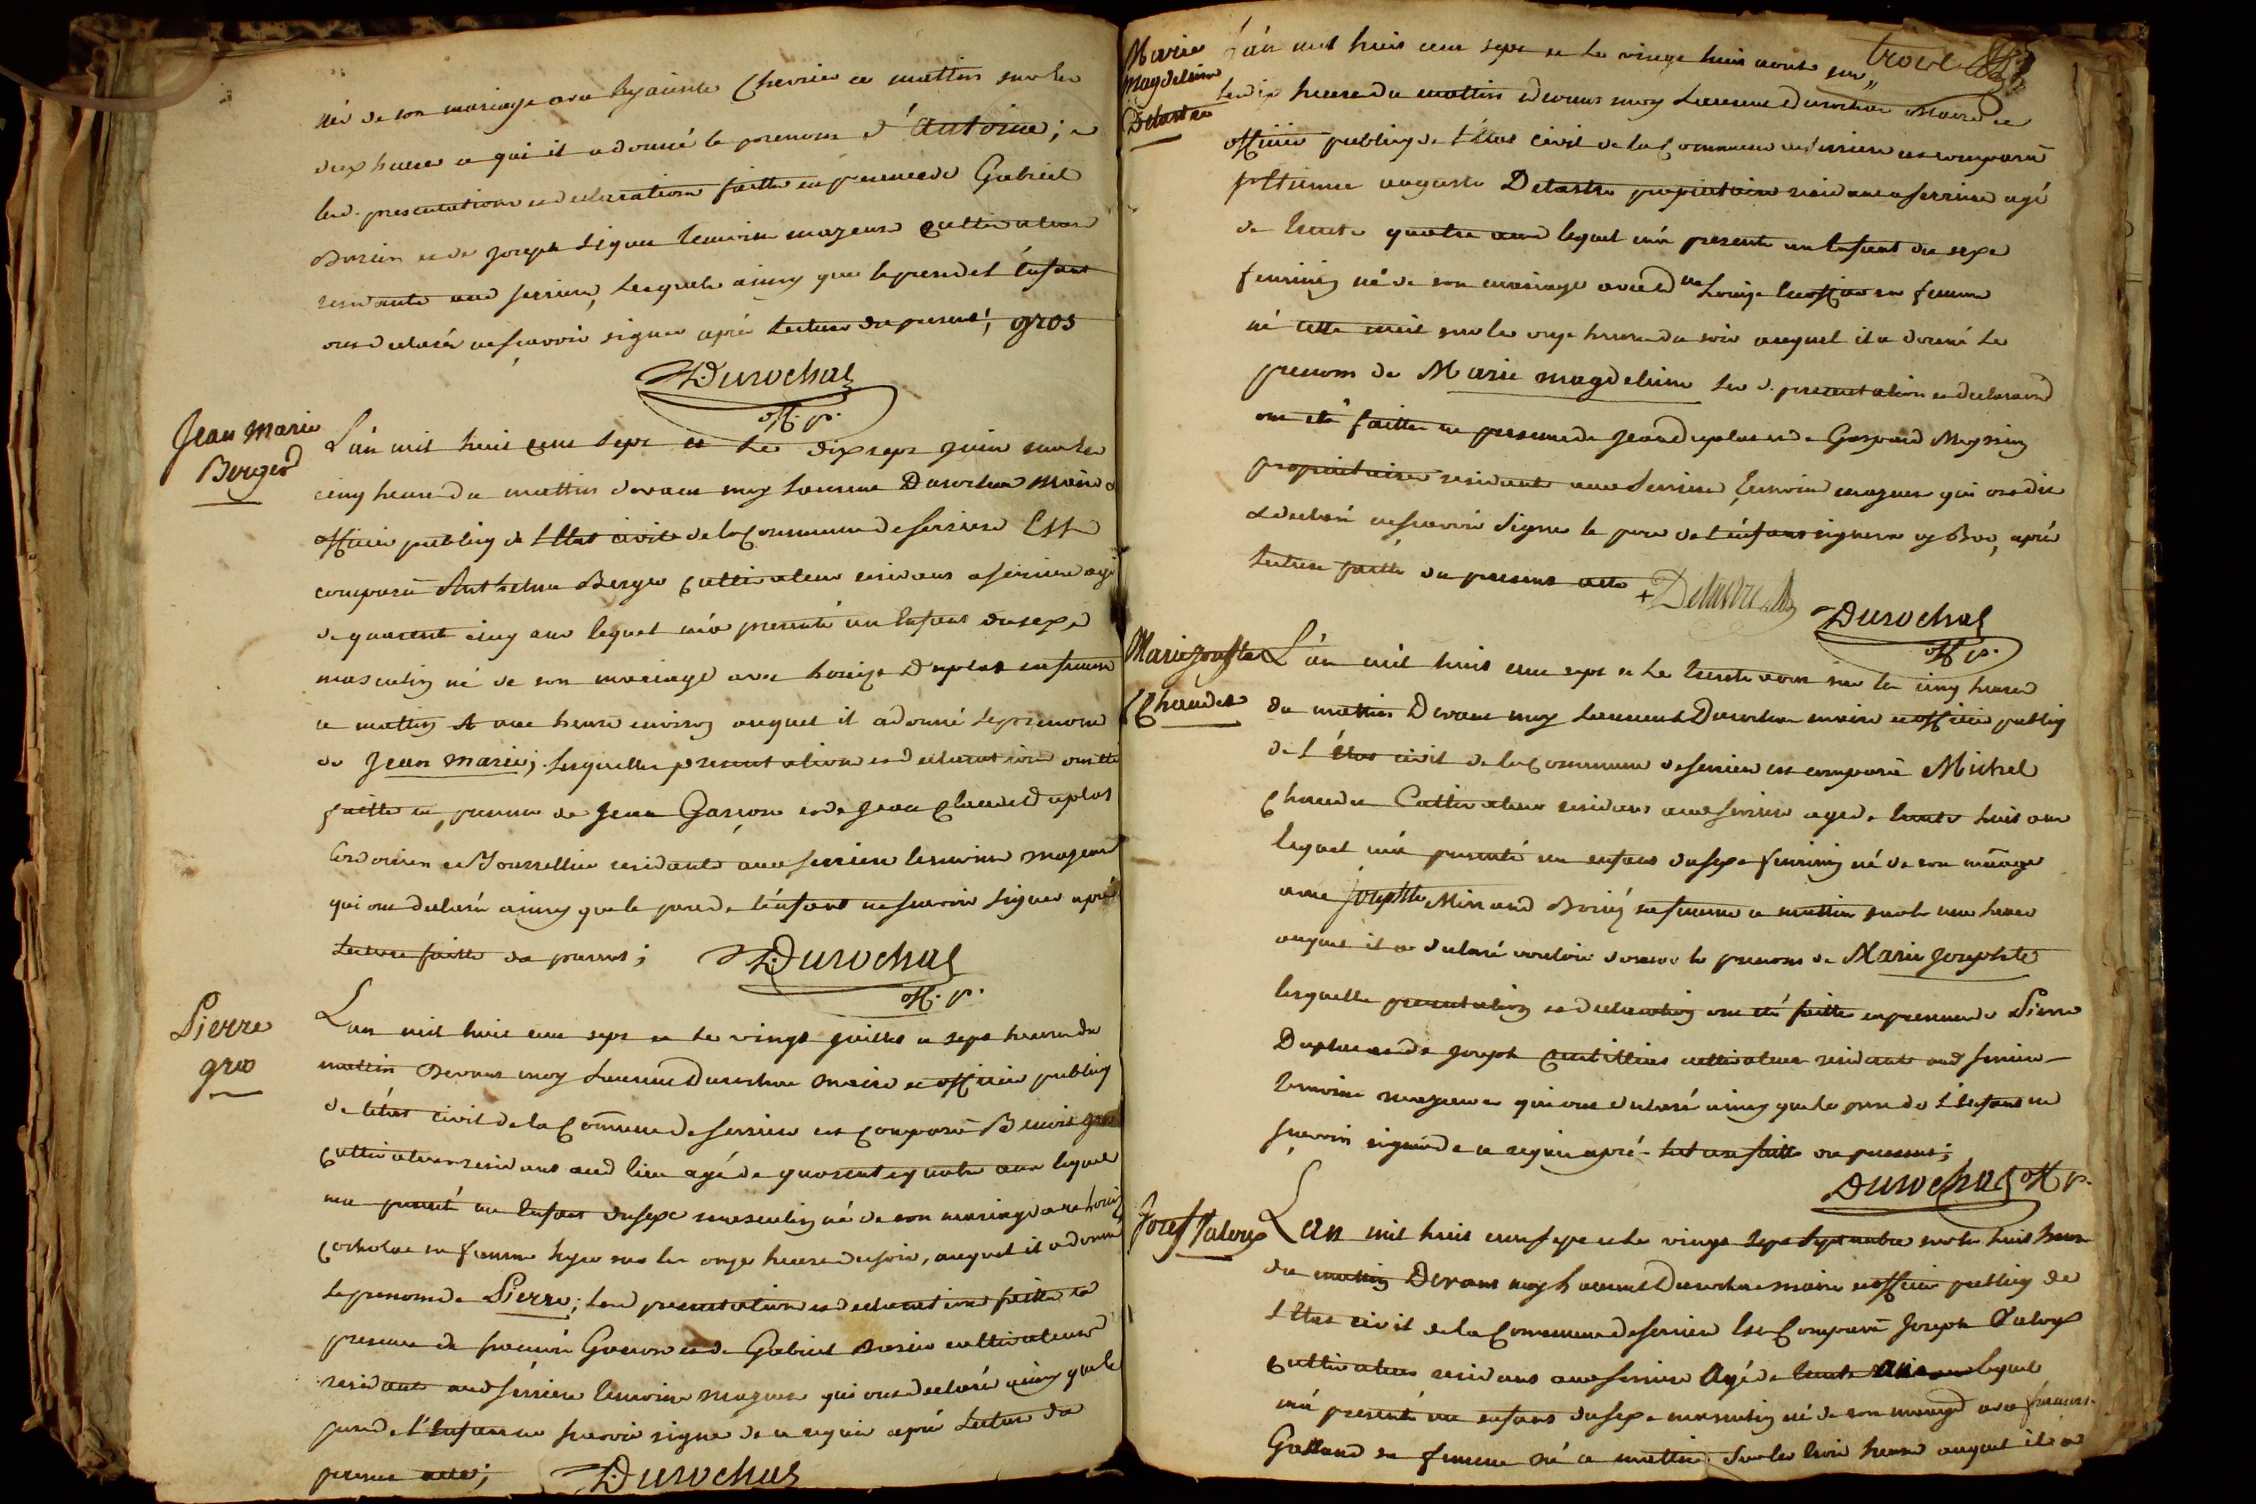 né de son mariage avec hyacinte Chevrier ce mattin sur les
dix heures a qui il a donné le prenom d'Antoine; a
lesd. presentations et declaration faitte en presence de Gabriel
et de joseph temoins majeurs cultivateurs
residants aud serriere, lesquels ainsy que le pere del'enfant
ont declaré ne scavoir signer aprés lecture du present; gros
Durochat
off. p.
Jean Marie
Berger
L'an mil huit cent sept et le dix sept juin sur les
cinq heures du mattin devant moy Laurent Durochat maire et
officier publiq de l'Etat civil de la Commune de serriere Est
comparu Anthelme Berger Cultivateur residant a serriere agé
de quarente cinq ans lequel m'a presenté un Enfant du sexe
masculin né de son mariage avec Louise Duplat sa femme
ce mattin a une heure environ auquel il a donné le prenom
de Jean marie; lesquelles presentation et declaration ont eté
faitte en presence de Jean Garçon et de Jean Claude Duplat
residants aud serriere temoins majeurs
qui ont declaré ainsy que le pere de l'enfant ne scavoir signer aprés
lecture faitte du present;
Durochat
off. p.
Pierre
gros
L'an mil huit cent sept et le vingt juillet a sept heures du
mattin Devant moy Laurent Durochat maire et officier publiq
de l'état civil de la Commune de serriere est comparu Benoit gros
Cultivateur residant aud lieu agé de quarente quatre ans lequel
ma presenté un Enfant du sexe masculin né de son mariage avec Louise
sa femme hyer sur les onze heures du soir, auquel il a donné
le prenom de Pierre; lesd presentation et declaration faitte en
presence de et de Gabriel cultivateurs
residants aud serriere temoins majeurs qui ont declaré ainsy que le
pere de l'Enfant ne scavoir signer de ce requis aprés lecture du
present acte;
Durochat
trois
Marie
Magdeleine
Delastre
L'an mil huit cent sept et le vingt huit aout sur
les dix heures du mattin devant moy Laurent Durochat Maire et
officier publiq de l'Etat civil de la Commune de serriere est comparu
Etienne auguste Delastre propriétaire residant a serriere agé
de trente quatre ans lequel m'a presenté un Enfant du sexe
feminin né de son mariage avec dme Louise sa femme
né cette nuit sur les onze heures du soir auquel il a donné le
prenom de Marie magdeleine les d. presentation et declaration
ont eté faitte en presence de Jean Duplat et de Gaspard
propriétaires residants aud serriere, temoins majeurs qui ont dit
et declaré ne scavoir signer le pere de l'enfant signera cy Bas, aprés
lecture faitte du present acte + Delastre
Durochat
off p.
Marie Josephte
Chaudet
L'an mil huit cent sept et le trente aout sur les cinq heures
du mattin Devant moy Laurent Durochat maire et officier publiq
de l'état civil de la Commune de serriere est comparu Michel
Chaudet Cultivateur residant aud serriere agé de trente huit ans
lequel m'a presenté un enfant du sexe feminin né de son mariage
avec Josephte sa femme ce mattin sur les une heure
auquel il a declaré vouloir donner le prenom de Marie Josephte
lesquelle presentation et declaration ont eté faitte en presence de Pierre
Duplat et de Joseph cultivateurs residants aud serriere
temoins majeurs qui ont declaré ainsy que le pere de l'Enfant ne
scavoir signer de ce requis aprés lecture faitte du present;
Durochat off p.
Josef Taloux
L'an mil huit cent sept et le vingt sept septembre sur les huit heures
du mattin Devant moy Laurent Durochat maire et officier publiq de
l'Etat civil de la Commune de serriere Est Comparu Joseph
Cultivateur residant aud serriere Agé de trente ans lequel
m'a presenté un enfant du sexe masculin né de son mariage avec
sa femme né ce mattin sur les trois heures auquel il a